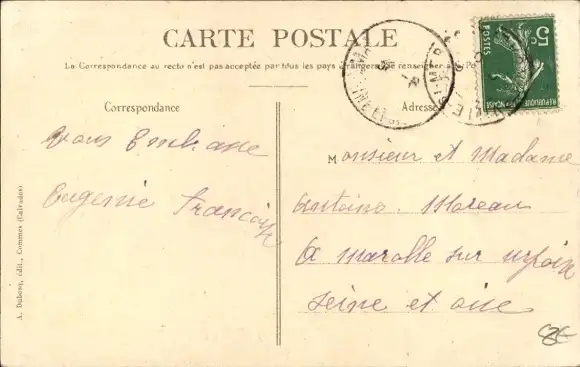 CARTE POSTALE
La Correspondance au recto n'est pas acceptée par tous les pays étrangers se renseigner à la Po
Correspondance
Adresse
vous Embrasse
Eugenie Francois
A. Dubosq, édit., Commes (Calvados)
Monsieur et Madame
Antoine Moreau
A marolle sur
Seine et oise
5c
POSTES
REPUBLIQUE FRANÇAISE